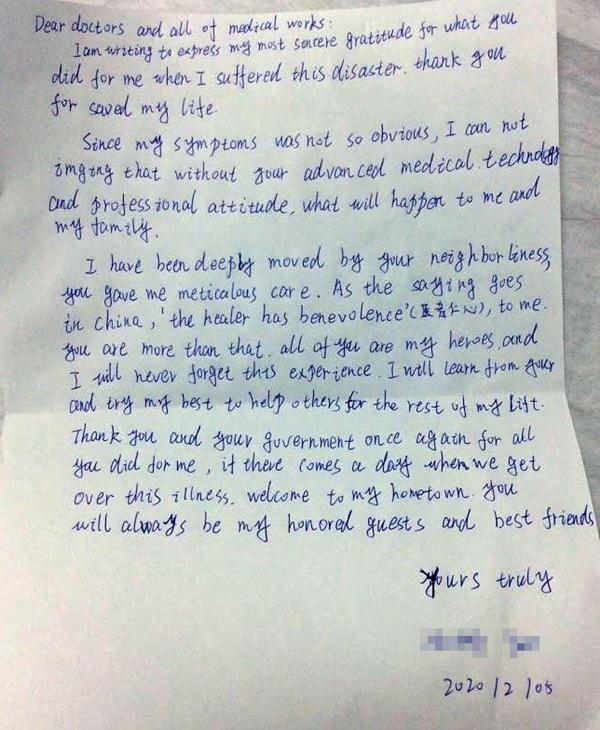 Dear doctors and all of medical works:
I am writing to express my most sencere gratitude for what you
did for me when I suffered this disaster. thank you
for saved my life.
Since my symptoms was not so obvious, I can not
imging that without your advanced medical technology
and professional attitude, what will happen to me and
my family.
I have been deeply moved by your neighborliness,
you gave me meticalous care. As the saying goes
in china, 'the healer has benevolence'(医者仁心), to me.
you are more than that. all of you are my heroes, and
I will never forget this experience. I will learn from your
and try my best to help others for the rest of my lift.
Thank you and your guvernment once again for all
you did for me, if there comes a day when we get
over this illness. welcome to my hometown. you
will always be my honored guests and best friends
yours truly
2020/2/08